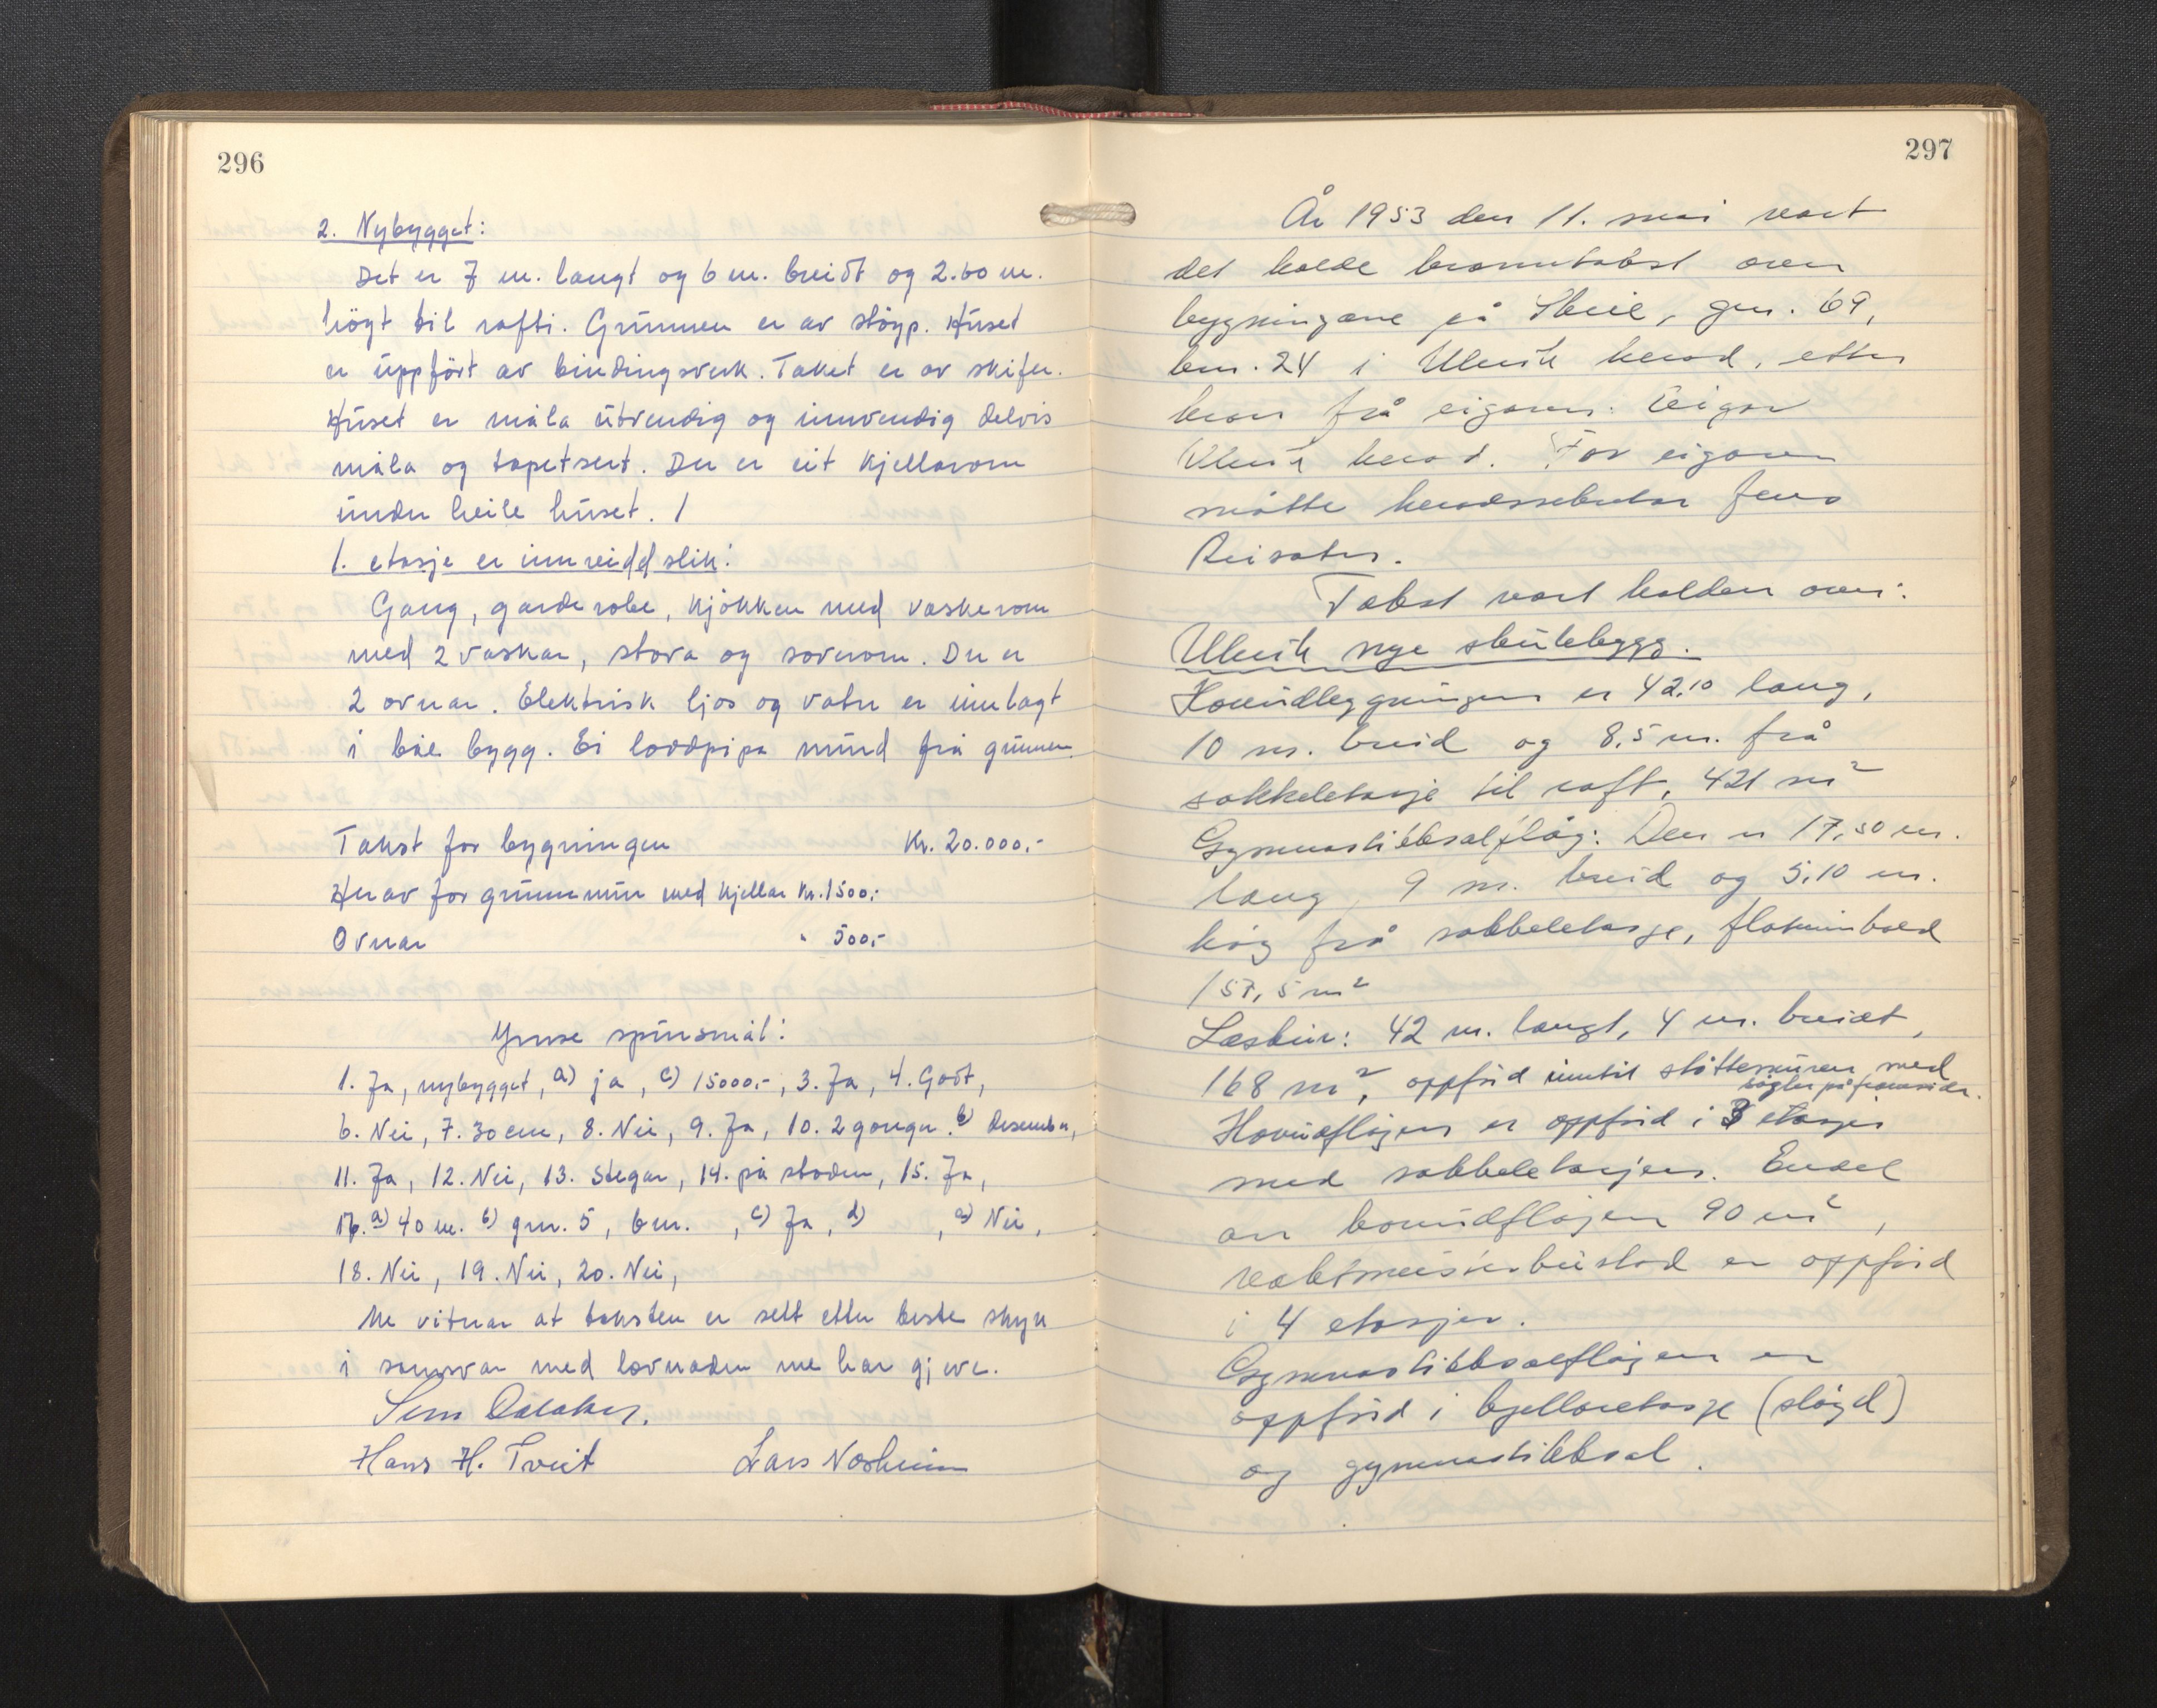 296
2. Nybygget:
Det er 7 m. langt og 6 m. breidt og 2.60 m.
högt til rafti. Grunnen er av støyp. Huset
er uppført av bindingsverk. Taket er av skifer.
Huset er måla utvendig og innvendig delvis
måla og tapetsert. Der er eit kjellarom
under heile huset. /
1. etasje er innreidd slik:
Gang, garderobe, kjøkken med vaskerom
med 2 vaskar, stova og soverom. Der er
2 ovnar. Elektrisk ljos og vatn er innlagt
i båe bygg. Ei loddpipa murd frå grunnen.
Takst for bygningen Kr. 20.000,-
Herav for grunnmur med kjellar kr. 1500,-
Ovnar " 500,-
Ymse spursmål:
1. Ja, nybygget, a) ja, c) 15000,-, 3. Ja, 4. Godt,
6. Nei, 7. 30 cm, 8. Nei, 9. Ja, 10. 2 gonger. b) desember,
11. Ja, 12. Nei, 13. Stegar, 14. på staden, 15. Ja,
16. a) 40 m. b) gnr. 5, bnr. , c) Ja, d) , e) Nei,
18. Nei, 19. Nei, 20. Nei,
Me vitnar at taksten er sett etter beste skyn
i samsvar med lovnaden me har gjeve.
Hans H. Tveit Lars Nesheim
297
År 1953 den 11. mai vart
det halde branntakst over
bygningane på Skeie, gnr. 69,
bnr. 24 i Ulvik herad, etter
krav frå eigaren: Eigar
Ulvik herad. For eigaren
møtte heradssekretær Jens
Reisæter.
Takst vart halden over:
Ulvik nye skulebygg.
Hovudbygningen er 42.10 lang,
10 m. breid og 8,5 m. frå
sokkeletasje til raft, 421 m²
Gymnastikksalfløy: Den er 17,50 m.
lang, 9 m. breid og 5,10 m.
høg frå sokkeletasje, flateinnhald
157,5 m²
Leskur: 42 m. langt, 4 m. breidt,
168 m², oppførd inntil støttemuren med
søyler på framsida.
Hovudfløyen er oppførd i 3 etasjer
med sokkeletasjen. Endel
av hovudfløyen 90 m²,
vaktmeisterbustad er oppførd
i 4 etasjer.
Gymnastikksalfløyen er
oppførd i kjellaretasje (sløyd)
og gymnastikksal.